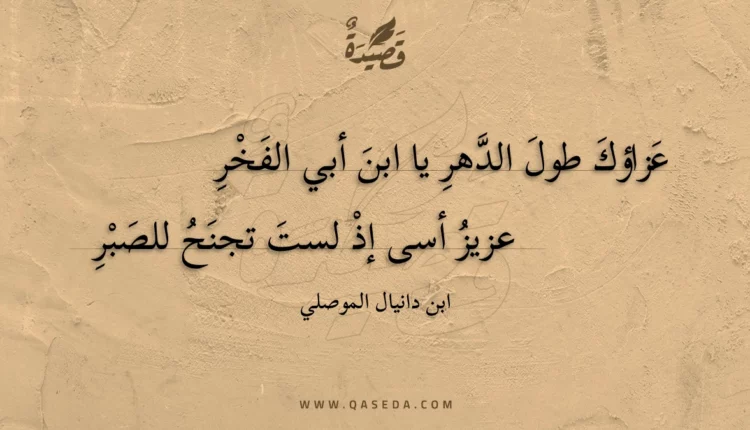 قَصِيدَةٌ
عَزاؤكَ طولَ الدَّهرِ يا ابنَ أبي الفَخْرِ
عزيزُ أسى إذْ لستَ تجنَحُ للصَبْرِ
ابن دانيال الموصلي
WWW.QASEDA.COM